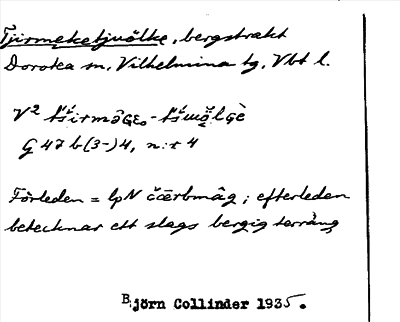 Tjirmeketjuölke, bergstrakt
Dorotea sn, Vilhelmina tg, Vbt l.
V² t́śirmə̂Gɛ₀-t́śuǫ̌lGè
G 47 b(3-)4, n:r 4
Förleden = lpN čœrbmâg; efterleden
betecknar ett slags bergig terräng
Björn Collinder 1935.